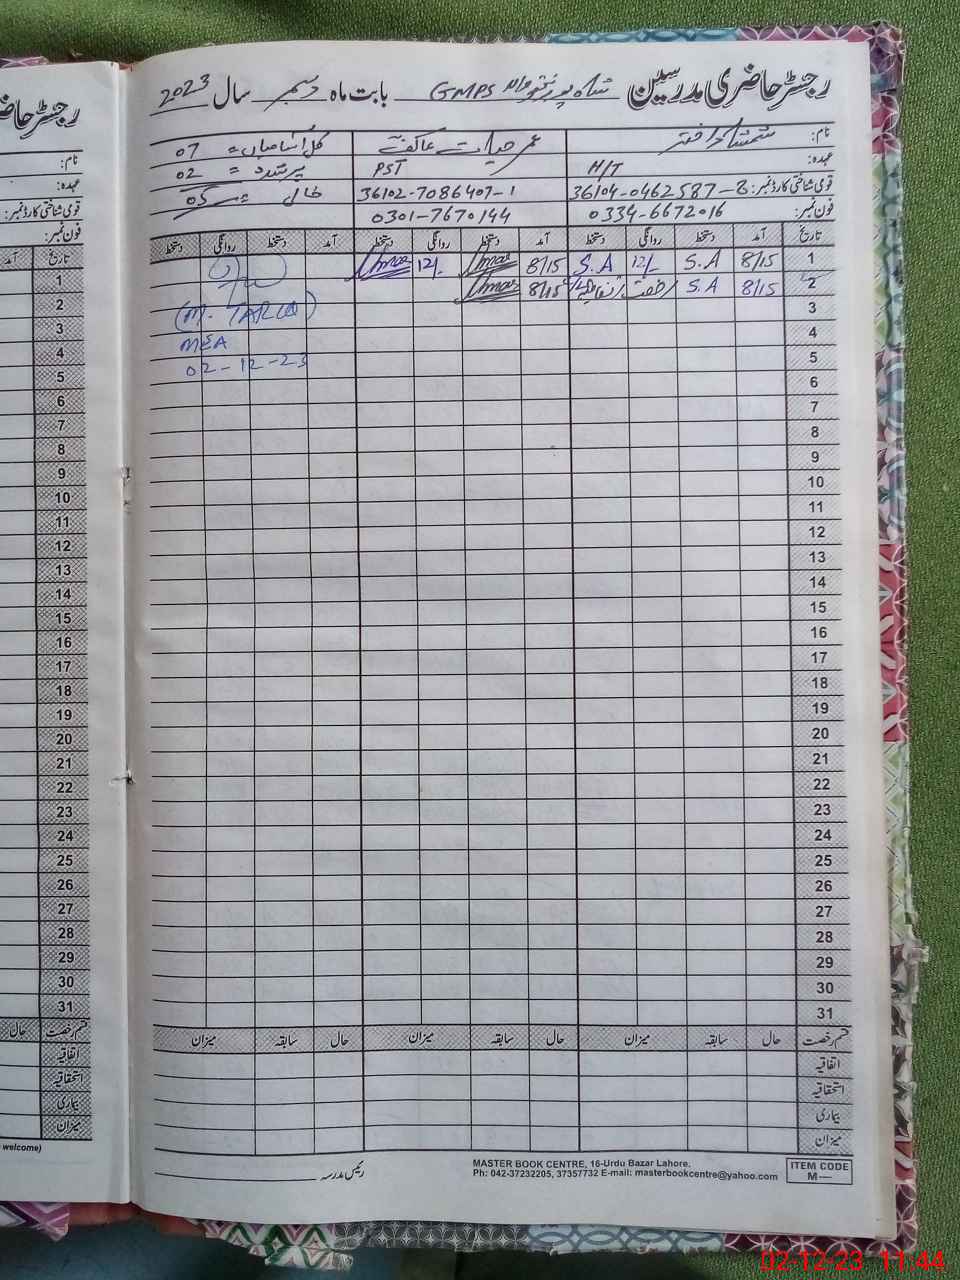 رجسٹر حاضری مدرسین GMPS شاہ پور بابت ماہ دسمبر سال 2023
نام: عمر حیات کل اسامیاں = 07
عہدہ: H/T PST 02 =
قومی شناختی کارڈ نمبر: 36104-0462587-8 36102-7086407-1 خالی = 05
فون نمبر: 0334-6672016 0301-7670144
تاریخ آمد دستخط روانگی دستخط آمد دستخط روانگی دستخط آمد دستخط روانگی دستخط
1 8/15 S.A 12/- S.A 8/15 Umar 12/- Umar
2 8/15 S.A رخصت 8/15 Umar
3
(M. TARIQ)
4
MEA
5
02-12-23
6
7
8
9
10
11
12
13
14
15
16
17
18
19
20
21
22
23
24
25
26
27
28
29
30
31
قسم رخصت حال سابقہ میزان حال سابقہ میزان حال سابقہ میزان
اتفاقیہ
استحقاقیہ
بیماری
میزان
رئیس مدرسہ
MASTER BOOK CENTRE, 16-Urdu Bazar Lahore.
Ph: 042-37232205, 37357732 E-mail: masterbookcentre@yahoo.com
ITEM CODE
M—
رجسٹر حاضری
نام:
عہدہ:
قومی شناختی کارڈ نمبر:
فون نمبر:
تاریخ آمد
1
2
3
4
5
6
7
8
9
10
11
12
13
14
15
16
17
18
19
20
21
22
23
24
25
26
27
28
29
30
31
قسم رخصت حال
اتفاقیہ
استحقاقیہ
بیماری
میزان
welcome)
02-12-23 11:44